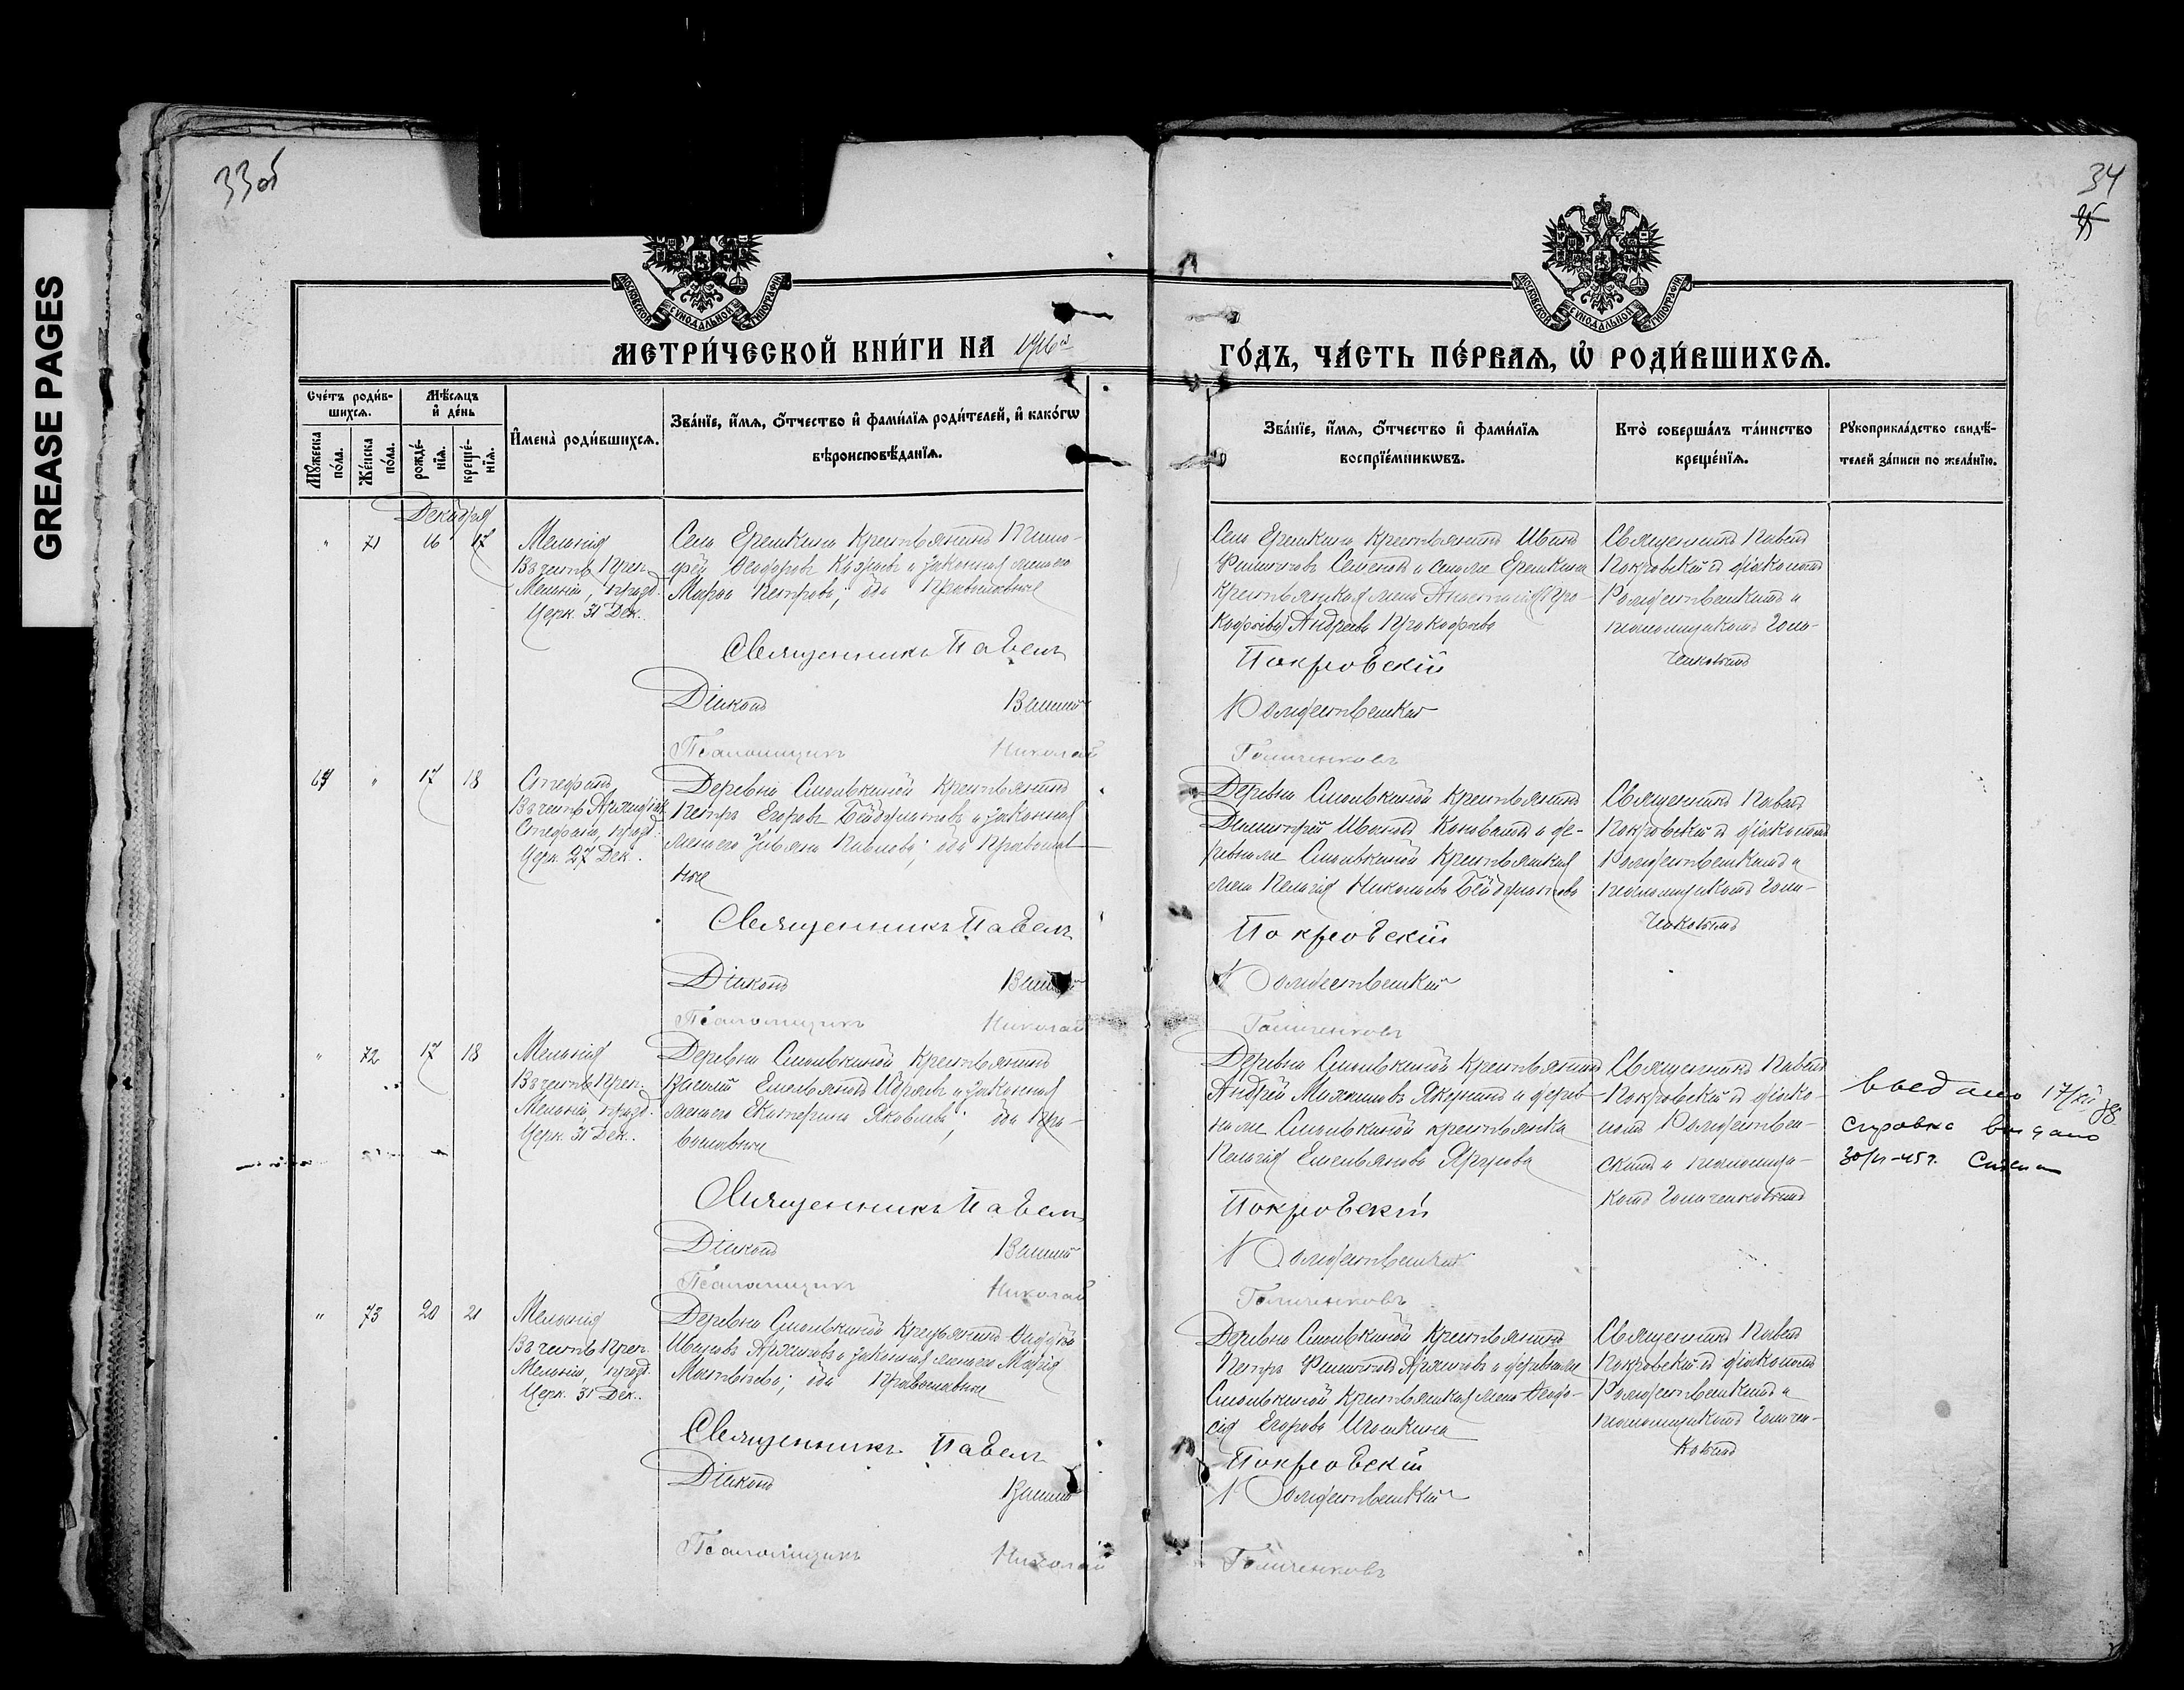 GREASE PAGES
33об
34
МОСКОВСКОЙ СѴНОДАЛЬНОЙ ТИПОГРАФІИ
МОСКОВСКОЙ СѴНОДАЛЬНОЙ ТИПОГРАФІИ
МЕТРИ́ЧЕСКОЙ КНИ́ГИ НА 1916 й
ГО́ДЪ, ЧА́СТЬ ПЕ́РВАѦ, Ѡ҆ РОДИ́ВШИХСѦ.
Сче́тъ роди́в-
шихсѧ.
Мѣ́сѧцъ
и҆ де́нь
Мꙋ́жеска
по́ла.
Же́нска
по́ла.
рожде́-
нїѧ.
креще́-
нїѧ.
И҆мена̀ роди́вшихсѧ.
Зва́нїе, и҆́мѧ, ѻ҆́тчество и҆ фами́лїѧ роди́телей, и҆ како́гѡ
вѣроисповѣ́данїѧ.
Зва́нїе, и҆́мѧ, ѻ҆́тчество и҆ фами́лїѧ
воспрїе́мникѡвъ.
Кто̀ соверша́лъ та́инство
креще́нїѧ.
Рꙋкоприкла́дство свидѣ́-
телей за́писи по жела́нїю.
Декабря
" 71 16 17
Меланія
Въ честь Преп.
Меланіи, празд.
Церк. 31 Дек.
Села Ерешкина крестьянинъ Тимо-
фей Ѳеодоровъ и законная жена его
Марѳа Петрова; оба Православные
Священникъ Павелъ
Діаконъ Василій
Псаломщикъ Николай
Села Ерешкина крестьянинъ Иванъ
Филипповъ Семеновъ и села Ерешкина
крестьянская жена Анастасія
Андреева Прокофьева
Покровскій
Рождественскій
Голиченковъ
Священникъ Павелъ
Покровскій съ діакономъ
Рождественскимъ и
псаломщикомъ Голи-
ченковымъ
" 17 18
Стефанъ
Въ честь Архидіак.
Стефана, празд.
Церк. 27 Дек.
Деревни Смолькиной крестьянинъ
Петръ Егоровъ и законная
жена его Ульяна Павлова; оба Православ-
ные
Священникъ Павелъ
Діаконъ Василій
Псаломщикъ Николай
Деревни Смолькиной крестьянинъ
Димитрій Ивановъ Коноваловъ и де-
ревни Смолькиной крестьянская
жена Пелагія Николаева
Покровскій
Рождественскій
Голиченковъ
Священникъ Павелъ
Покровскій съ діакономъ
Рождественскимъ и
псаломщикомъ Голи-
ченковымъ
" 72 17 18
Меланія
Въ честь Преп.
Меланіи, празд.
Церк. 31 Дек.
Деревни Смолькиной крестьянинъ
Василій Емельяновъ и законная
жена его Екатерина Яковлева; оба Пра-
вославные
Священникъ Павелъ
Діаконъ Василій
Псаломщикъ Николай
Деревни Смолькиной крестьянинъ
Андрей и дерев-
ни Смолькиной крестьянка
Пелагія Емельянова
Покровскій
Рождественскій
Голиченковъ
Священникъ Павелъ
Покровскій съ діако-
номъ Рождествен-
скимъ и псаломщи-
комъ Голиченковымъ
17/XII 38
Справка выдана
" 73 20 21
Меланія
Въ честь Преп.
Меланіи, празд.
Церк. 31 Дек.
Деревни Смолькиной крестьянинъ
и законная жена его Марія
Матвѣева; оба Православные
Священникъ Павелъ
Діаконъ Василій
Псаломщикъ Николай
Деревни Смолькиной крестьянинъ
Петръ Филипповъ и деревни
Смолькиной крестьянская жена Ѳеодо-
сія Егорова
Покровскій
Рождественскій
Голиченковъ
Священникъ Павелъ
Покровскій съ діакономъ
Рождественскимъ и
псаломщикомъ Голичен-
ковымъ